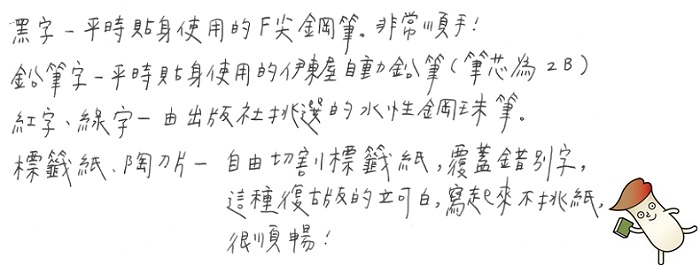 黑字－平時貼身使用的F尖鋼筆。非常順手！
鉛筆字－平時貼身使用的伊東屋自動鉛筆（筆芯為2B）
紅字、綠字－由出版社挑選的水性鋼珠筆。
標籤紙、陶刀片－自由切割標籤紙，覆蓋錯別字，
這種復古版的立可白，寫起來不挑紙，
很順暢！